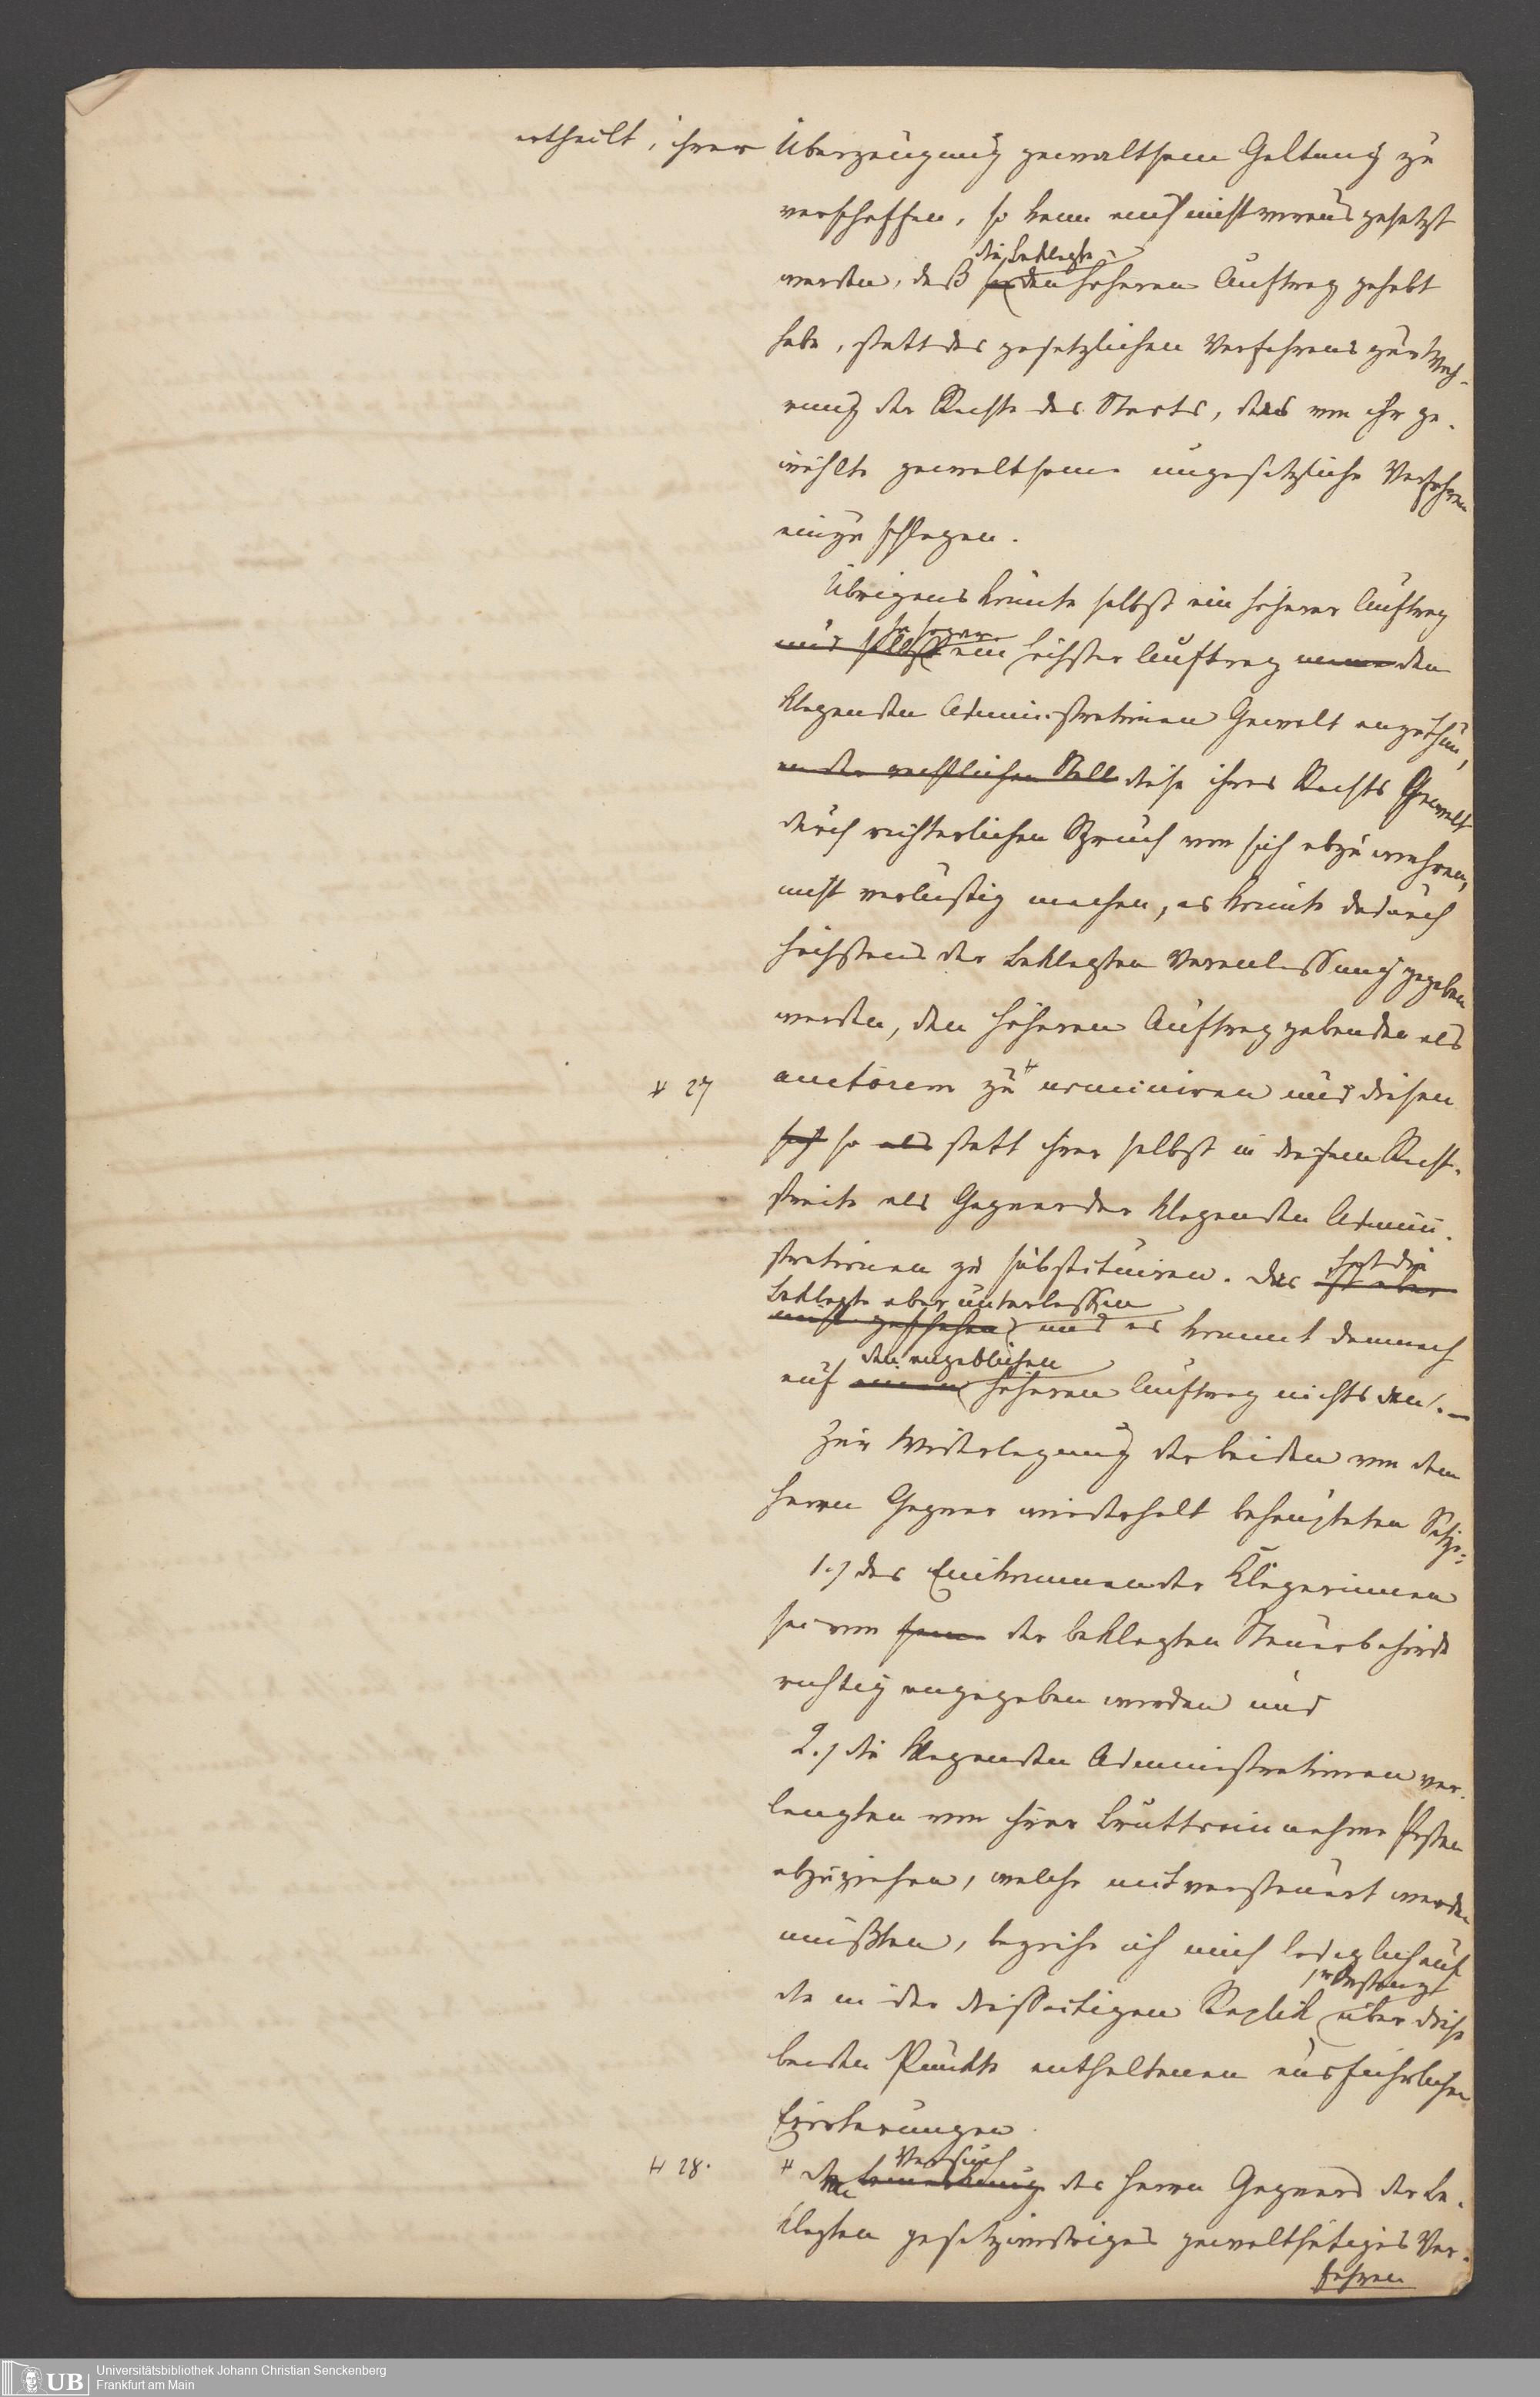 ertheilt, ihrer Überzeugung gewaltsam Geltung zu
verschaffen, so kann auch nicht voraus gesetzt
die Beklagte
werden, daß sie den höheren Auftrag gehabt
habe, statt des gesetzlichen Verfahrens zur Wah-
rung der Rechte des Staats, das von ihr ge-
wählte gewaltsame ungesetzliche Verfahren
einzuschlagen.
Übrigens könnte selbst ein höherer Auftrag
ja sogar
und selbst ein höchster Auftrag den
klagenden Administrationen Gewalt anzuthun,
an der rechtlichen Stell diese ihres Rechts Gewalt
durch richterlichen Spruch von sich abzuwehren,
nicht verlustig machen, es könnte dadurch
höchstens der Beklagten Veranlassung gegeben
werden, den höheren Auftrag gebenden als
# 27
auctorem zu # nominiren und diesen
sich so als statt ihrer selbst in diesem Rechts-
streite als Gegner der klagenden Admini-
strationen zu substituiren. Das ist aber
hat die
Beklagte aber unterlassen
nicht geschehen und es kommt demnach
den angeblichen
auf einen höheren Auftrag nichts an. —
Zur Widerlegung der beiden von dem
Herrn Gegner wiederholt behaupteten Sätze:
1.) das Einkommen der Klägerinnen
sei von der beklagten Steuerbehörde
richtig angegeben worden und
2.) die klagenden Administrationen ver-
langten von ihrer Bruttoeinnahme Posten
abzuziehen, welche mit versteuert werden
müßten, beziehe ich mich lediglich auf
die in der diesseitigen Replik über diese
beiden Punkte enthaltenen ausführlichen
Erörterungen.
# 28.
Versuch
# Den Bemerkung des Herrn Gegners der Be-
klagten gesetzwidriges gewaltthätiges Ver-
fahren
Universitätsbibliothek Johann Christian Senckenberg
Frankfurt am Main
UB